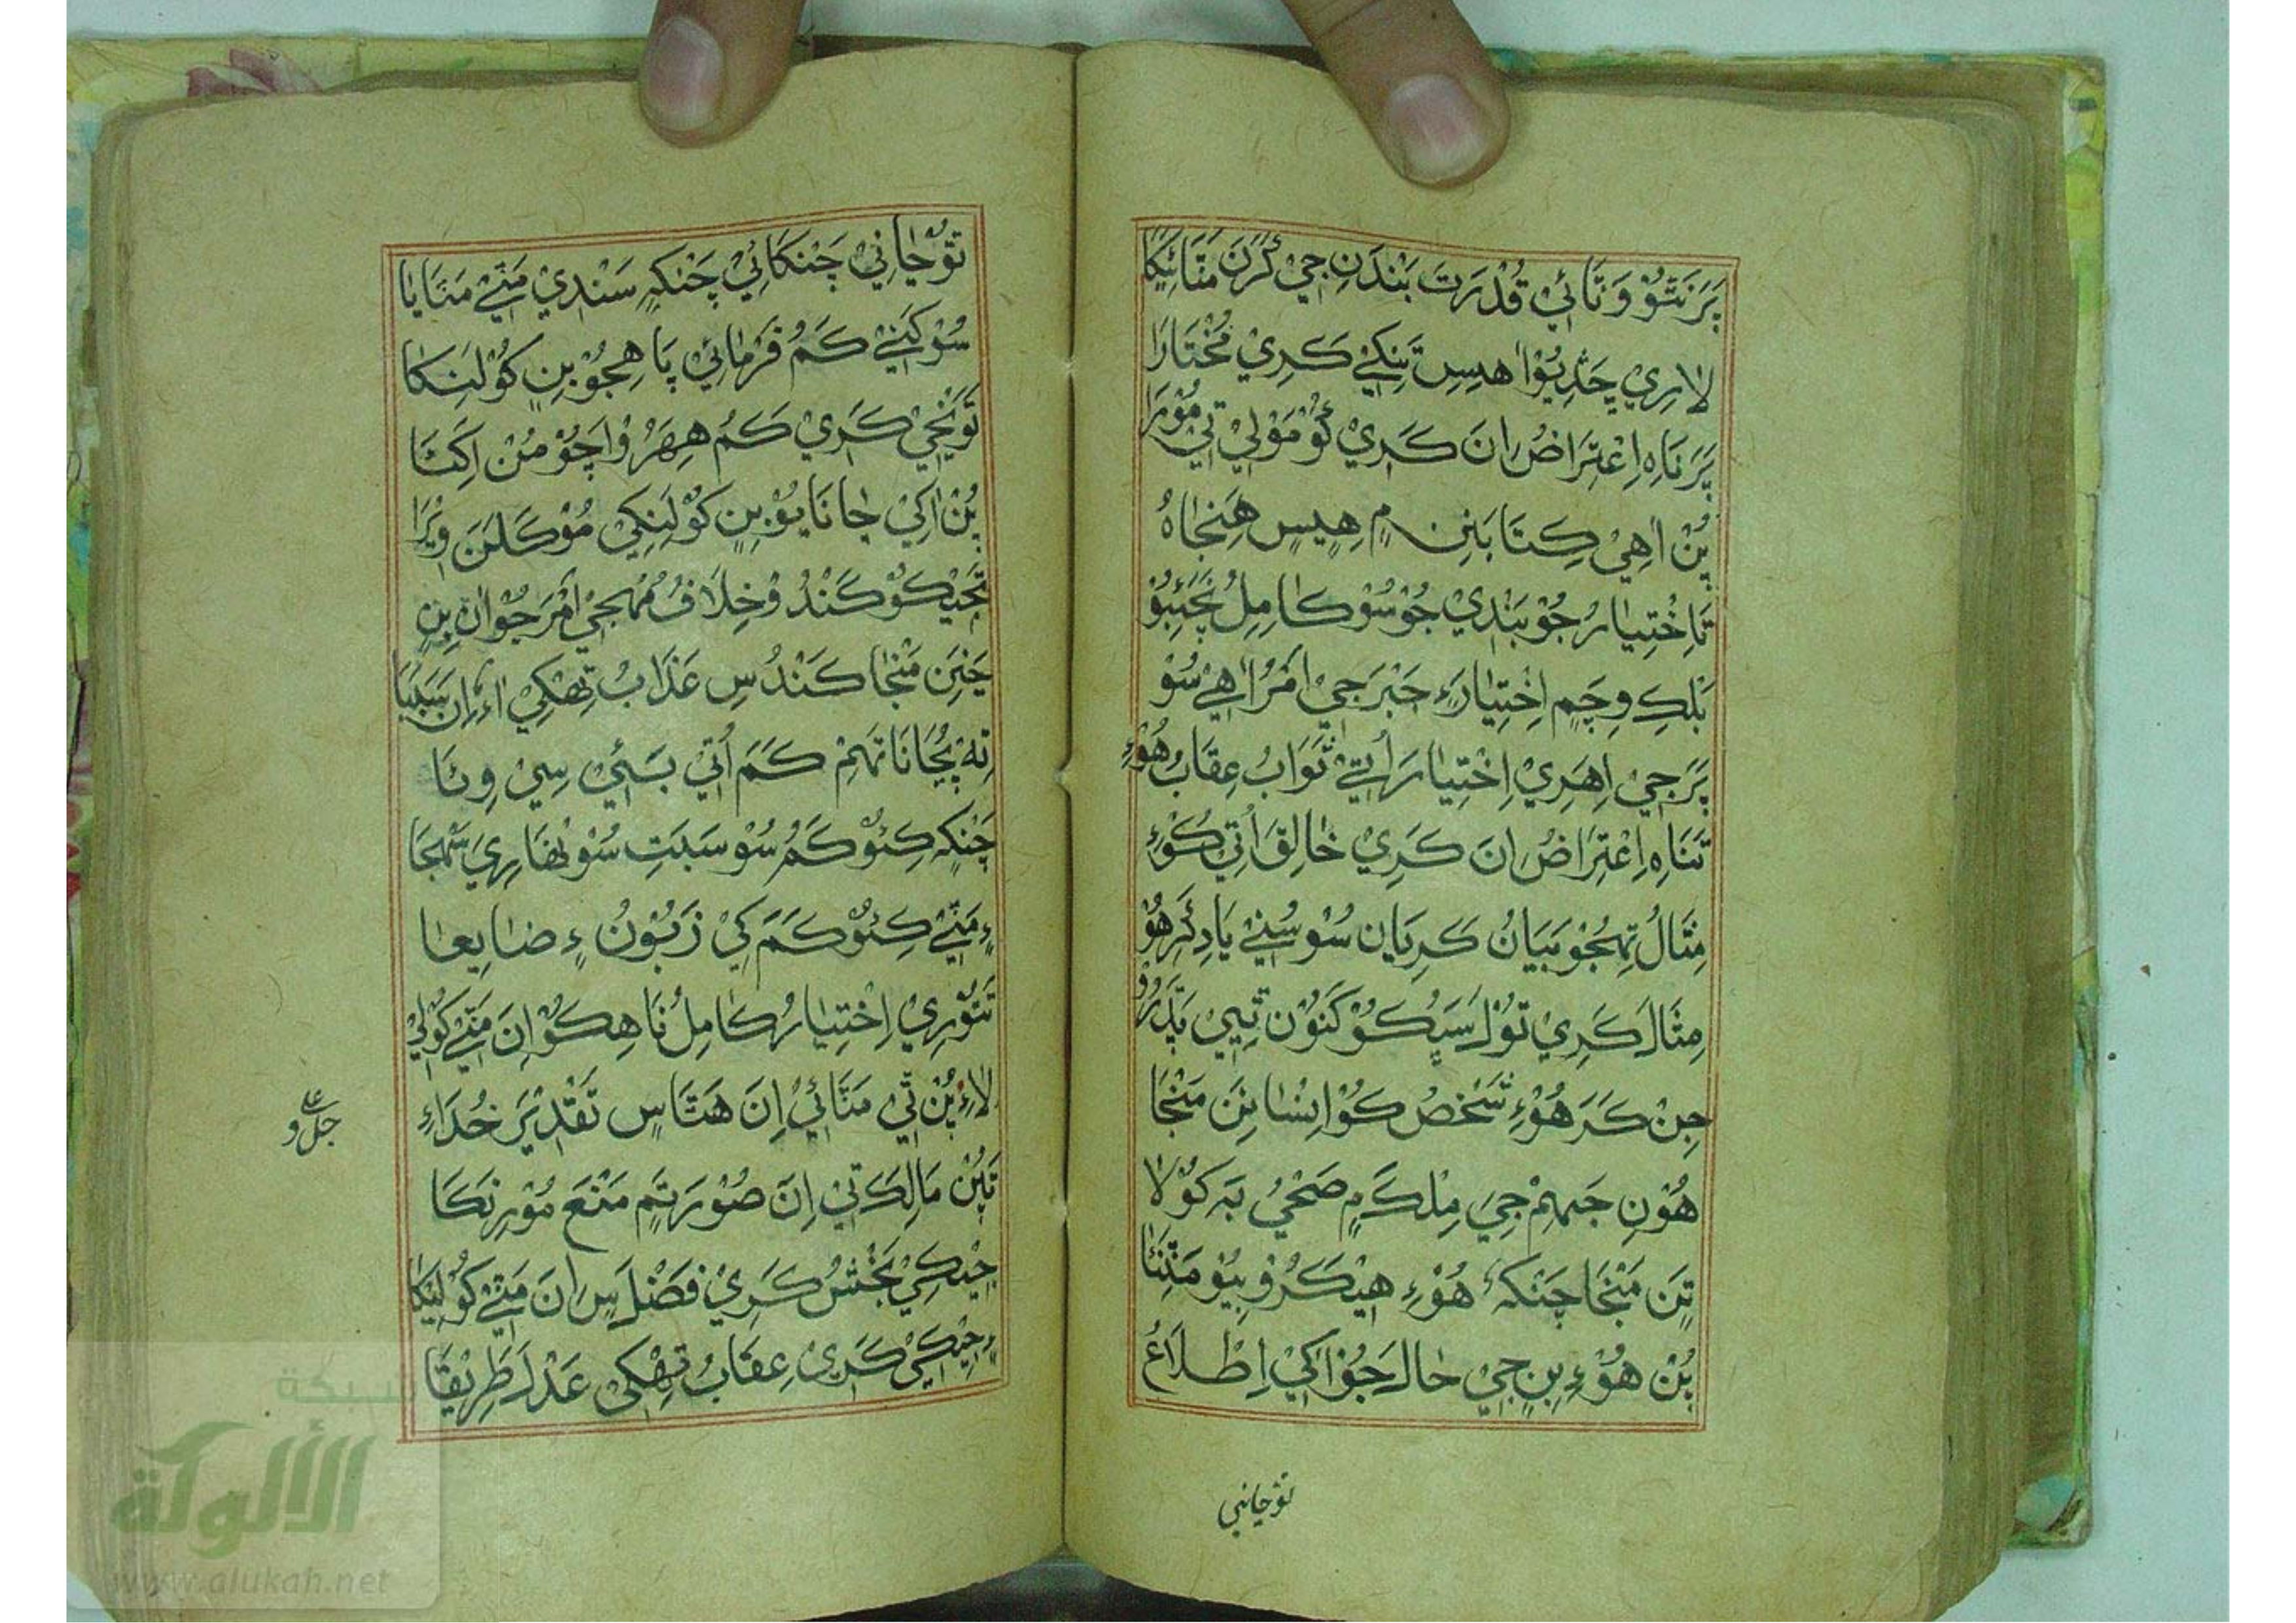 پَرَنَتُوْ وَتَائِيْ قُدْرَتَ بَنْدَنِ جِيْ كَرَنَ مَتَائِيْكَا
لَارِيْ چَڎِيُوْاهِسِ تَنِكٖيْ كَرِيْ مُخْتَارَا
پَرَنَاهِ اِعْتِرَاضُ اِنَ كَرِيْ كُوْمَوْلٖيْ تٖيْ مُوْرَا
پُنْ اٰهِيْ كِتَابَنِ ۾ هِيسٍ هَنِجَاهُ
تَاخْتِيَارُ جُوْبَنْدِيْ جُوْسُوْ كَامِلُ نَچَئِبُوْ
بَلْكِ وِچَمِ اِخْتِيَارَءِ جَبْرَجِيْ اَمَرُ اٰهِيْ سُوْ
پَرَجِيْ اِهَرِيْ اِخْتِيَارَاُتٖيْ ثَوَابُ عِقَابُ هُوْءِ
تَنَاهِ اِعْتِرَاضُ اِنَ كَرِيْ خَالِقَ اُتٖيْ كُوْءِ
مِثَالُ تِهٖجُوْ بَيَانُ كَرِيَانِ سُوْسُنٖيْ يَادِ كَرِهُوْ
مِثَالَ كَرِيْ تُوْلَ سَپُكُوْ كَنَوُنْ ثِيٖيْ پَڌَرُوْ
جِنْ كَرَ هُوْءِ شَخْصُ كُوْ اِنْسَانِنَ مَنْجَا
هُوْنِ جَهِمْ جِيَ مِلْكَ ۾ صَحْيُ بَهْ كُوْلَا
تِنَ مَنْجَا چَنْكَهْ هُوْءِ هِيْكَرُوْ بِيُوْ مَٺِنَا
پُنْ هُوْءِ بِنِ جِيْ حَالَ جُوْاُكِيْ اِطْلَاعُ
تَوْجَانِي
تَوْجَانِيْ چَنْكَائِيْ چَنْكَهٖ سَنْدِيْ مَٺٖيْ مَٺَايَا
سُوْكَنٖيْ كَمُ فَرْمَائِيْ پَاهِجُوْ بِنِ كُوْلَنِكَا
تَوْنِجِيْ كَرِيْ كَمُ هِهَرُوْ اَچُوْ مُنْ اَكَٺَا
پُنْ اُكِيْ جَانَايُوْ بِنِ كُوْلَنِكِيْ مُوْكَلَنَ وِيْرَا
تَجِيْكُوْ كَنْدُوْ خِلَافُ مُهْجِيْ اَمَرَ جُوْ اَنِ بِنِ
جَنِنَ مَنْجَا كَنْدُسِ عَذَابُ تِهْكِيْ اِءُ اِنَ سَبَبَا
تِهْ پُجَانَا تَهٖمْ كَمَ اُتٖيْ بَئٖيْ سِيْ وِئَا
چَنْكَهٖ كِئُوْ كَمُ سُوْ سَبَتِ سُوْنْهَارِيَ سَمْجَا
ءِ مَٺٖيْ كِئُوْ كَمَ كِيْ زَبُوْنُ ءِ ضَايِعَا
تَتَوْرِيْ اِخْتِيَارُ كَامِلُ نَاهِكُوْ اِنَ مَٺٖيْ كُوْلِيْ
لَاءِ پُنْ تٖيْ مَٺَائِيْ اِنَ هَٺَاسِ تَقْدِيْرَ خُدَاءِ
جل و علا
تَپُنْ مَالِكَ تٖيْ اِنَ صُوْرَتَمِ مَنْعَ مُوْرِ نَكَا
جِيْكِيْ بَخْشُ كَرِيْ فَضْلَ سِ اِنَ مَٺٖيْ كُوْلِيْكَا
ءِ جِيْكِيْ كَرِيْ عِقَابُ تِهْكِيْ عَدْلَ طَرِيْقَا
شبكة
الألوكة
www.alukah.net